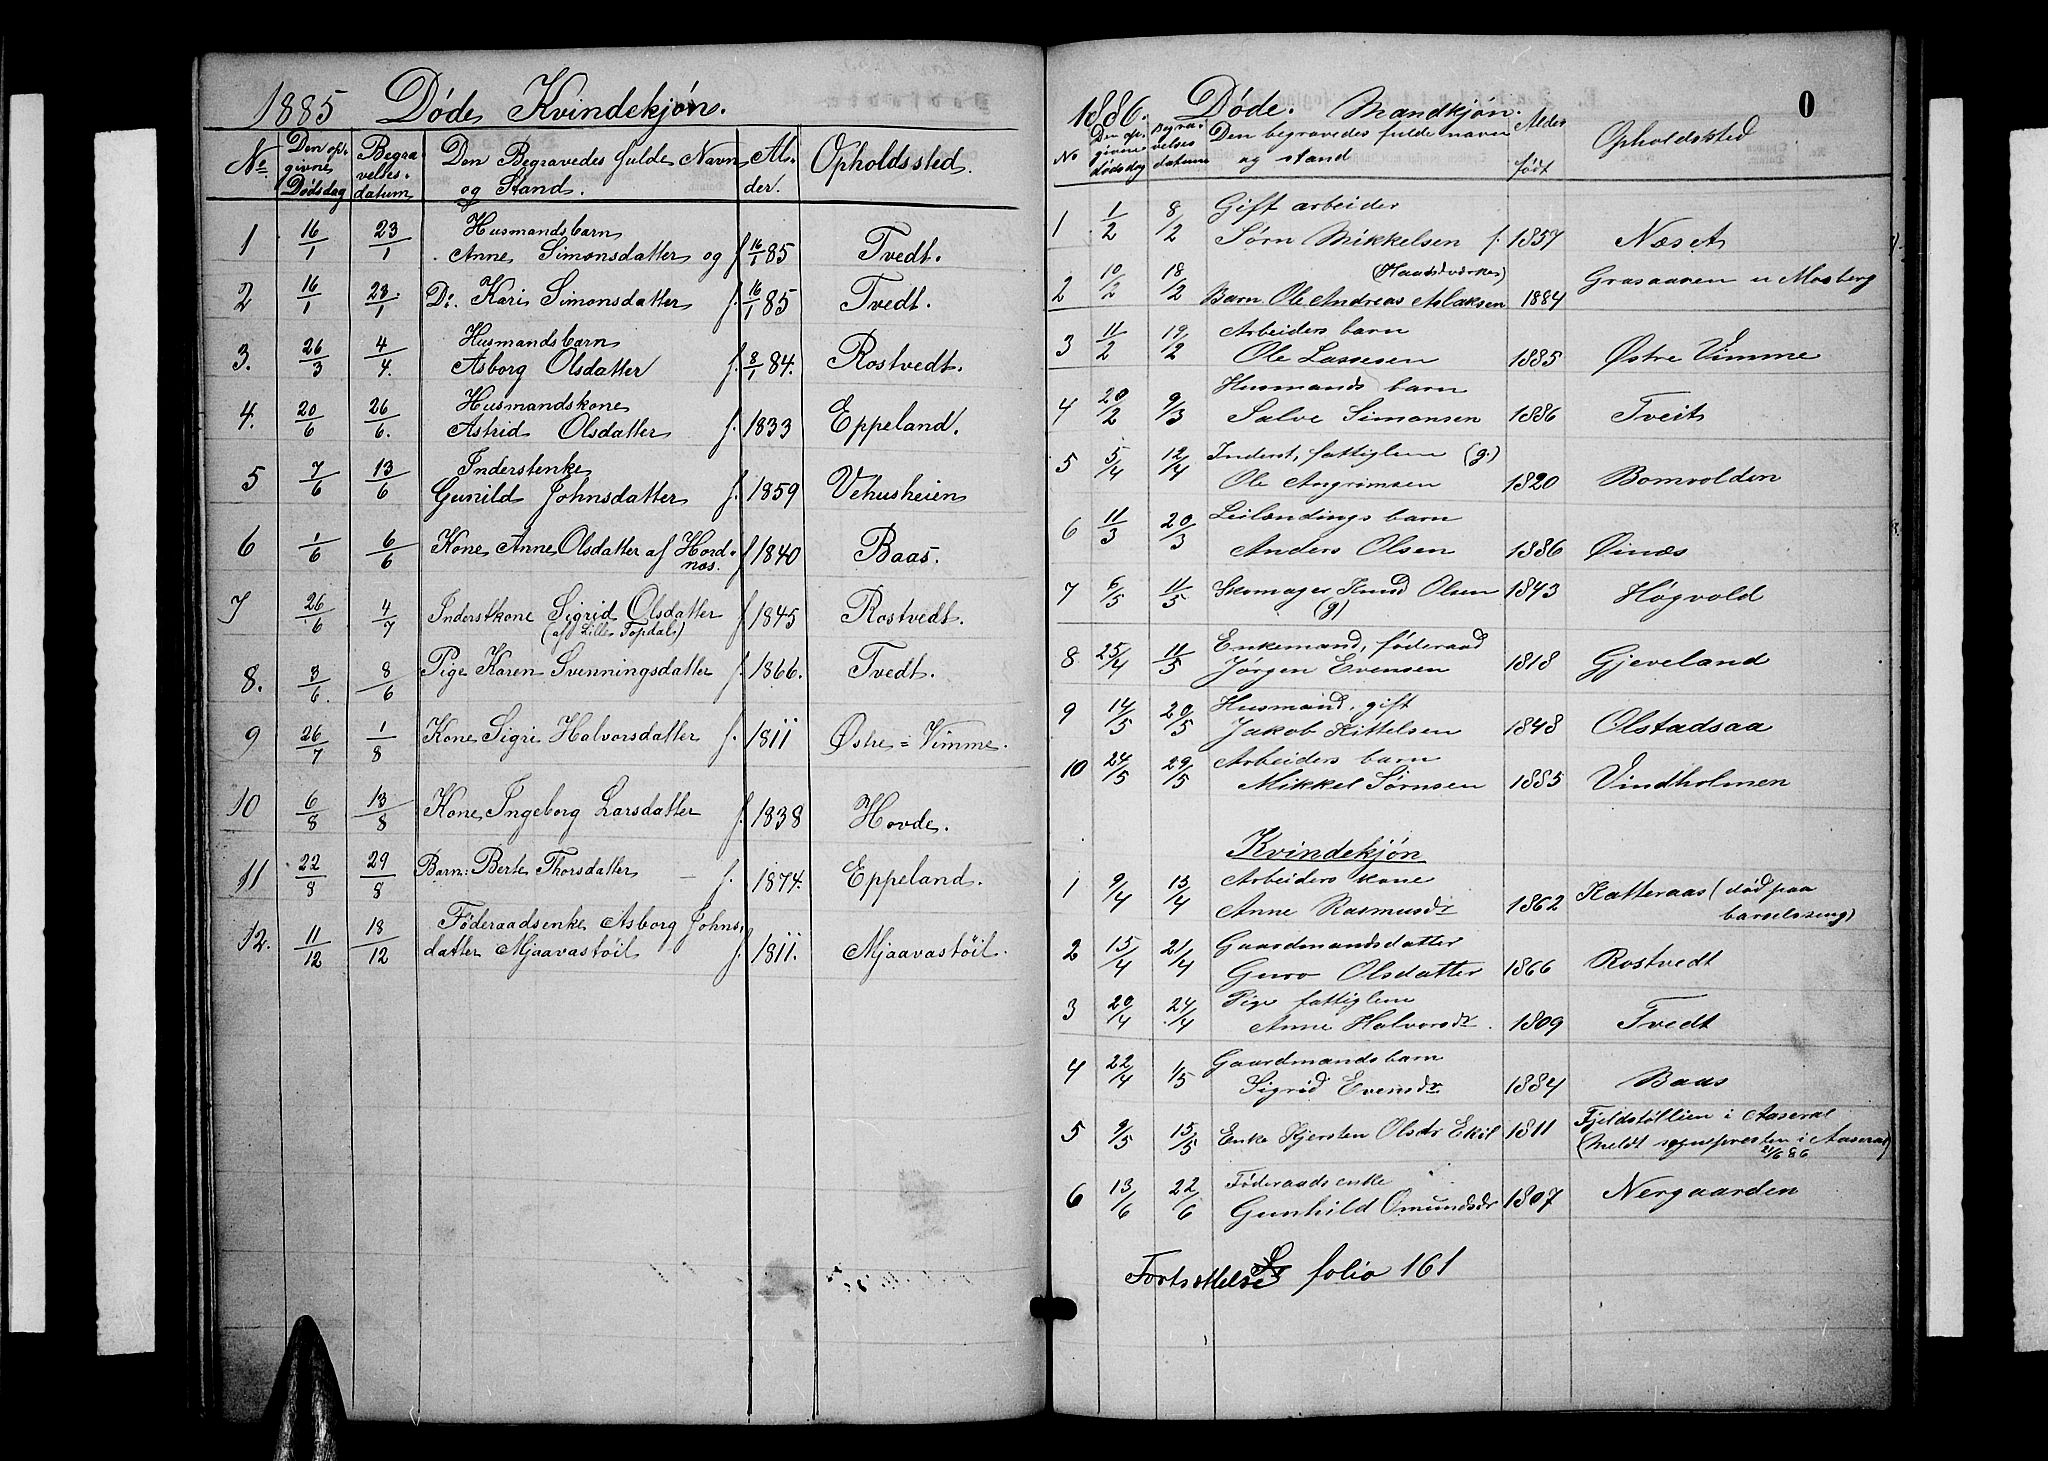 1885 Døde Kvindekjøn.
No. Den opgivne Dødsdag Begravelsesdatum Den Begravedes fulde Navn og Stand. Alder. Opholdssted.
1 16/1 23/1 Husmandsbarn
Anne Simonsdatter og f. 16/1 85 Tvedt.
2 16/1 23/1 Do: Kari Simonsdatter f. 16/1 85 Tvedt.
3. 26/3 4/4. Husmandsbarn
Asborg Olsdatter f. 8/1 84. Rostvedt.
4. 20/6 26/6. Husmandskone
Astrid Olsdatter f. 1833 Eppeland.
5 7/6 13/6 Inderstenke
Gunild Johnsdatter f. 1859 Vehusheien
6 1/6 6/6 Kone Anne Olsdatter af Hordnæs. f 1840 Baas.
7 26/6 4/7 Inderstkone Sigrid Olsdatter f 1845 Rostvedt.
(af Lille Topdal)
8. 3/6. 8/6 Pige Karen Svenningsdatter f. 1866. Tvedt.
9 26/7 1/8 Kone Sigri Halvorsdatter f. 1811 Østre=Vimme.
10 6/8 13/8 Kone Ingeborg Larsdatter f. 1838 Hovde.
11 22/8 29/8 Barn: Berte Thorsdatter – f. 1874. Eppeland.
12. 11/12 18/12 Føderaadsenke Asborg Johns-
datter Mjaavastøil f. 1811. Mjaavastøil.
1886. Døde. Mandkjøn. 0
No Den opgivne dødsdag Begravelses datum Den begravedes fulde navn og stand Alder født Opholdssted
1 1/2 8/2 Gift arbeider
Sørn Mikkelsen f. 1857 Næset
2 10/2 18/2 (Haandværker)
Barn Ole Andreas Aslaksen 1884 Grasaaren u Mosberg
3 11/2 19/2 Arbeiders barn
Ole Lassesen 1885 Østre Vimme
4 20/2 9/3 Husmands barn
Salve Simonsen 1886 Tveit
5 5/4 12/4 Inderst, fattiglem (g.)
Ole Angrimsen 1820 Bomvolden
6 11/3 20/3 Leilændings barn
Anders Olsen 1886 Øinæs
7 6/5 11/5 Skomager Knud Olsen 1843 Høgvold
(g)
8 25/4 11/5 Enkemand, føderaad
Jørgen Evensen 1818 Gjeveland
9 14/5 20/5 Husmand, gift
Jakob Kittelsen 1848 Olstadsaa
10 24/5 29/5 Arbeiders barn
Mikkel Sørnsen 1885 Vindholmen
Kvindekjøn
1 9/4 15/4 Arbeiders kone
Anne Rasmusdr 1862 Katteraas (død paa
barselseng)
2 15/4 21/4 Gaardmandsdatter
Guro Olsdatter 1866 Rostvedt
3 20/4 24/4 Pige fattiglem
Anne Halvorsdr. 1809 Tvedt
4 22/4 1/5 Gaardmandsbarn
Sigrid Evensdr 1884 Baas
5 9/5 15/5 Enke Kjersten Olsdr Ekil 1811 Fjeldstøllien i Aaseral
(meldt sognepresten i Aaseral)
21/6 86
6 13/6 22/6 Føderaads enke
Gunhild Omundsdr 1807 Nergaarden
Fortsættelse folio 161